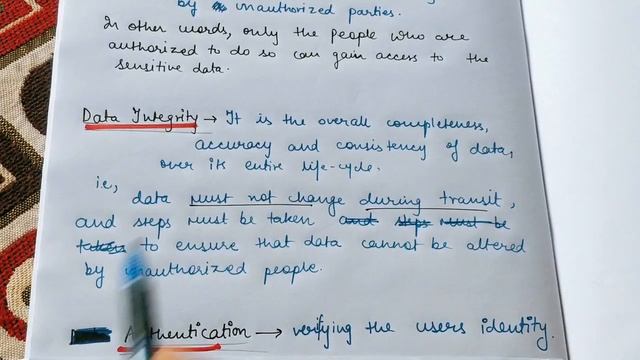 by unauthorized parties.
In other words, only the people who are
authorized to do so can gain access to the
sensitive data.
Data Integrity → It is the overall completeness,
accuracy and consistency of data,
over its entire life-cycle.
i.e, data must not change during transit,
and steps must be taken and steps must be
taken to ensure that data cannot be altered
by unauthorized people.
Authentication → verifying the users identity.